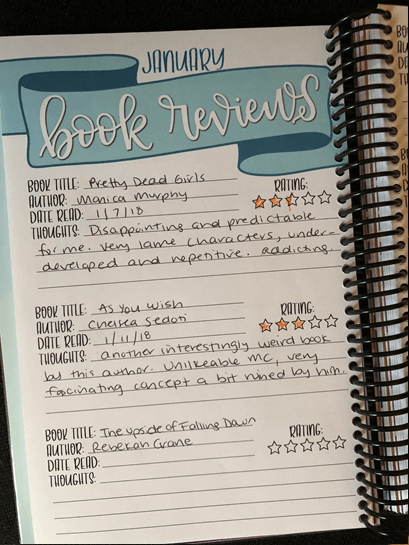 JANUARY
book reviews
BOOK TITLE: Pretty Dead Girls
AUTHOR: Monica Murphy
RATING:
DATE READ: 1/7/18
THOUGHTS: Disappointing and predictable
for me. Very lame characters, under-
developed and repetitive. Addicting.
BOOK TITLE: As You Wish
AUTHOR: Chelsea Sedoti
RATING:
DATE READ: 1/11/18
THOUGHTS: another interestingly weird book
by this author. Unlikeable MC, very
fascinating concept a bit ruined by him.
BOOK TITLE: The upside of Falling Down
AUTHOR: Rebekah Crane
RATING:
DATE READ:
THOUGHTS: